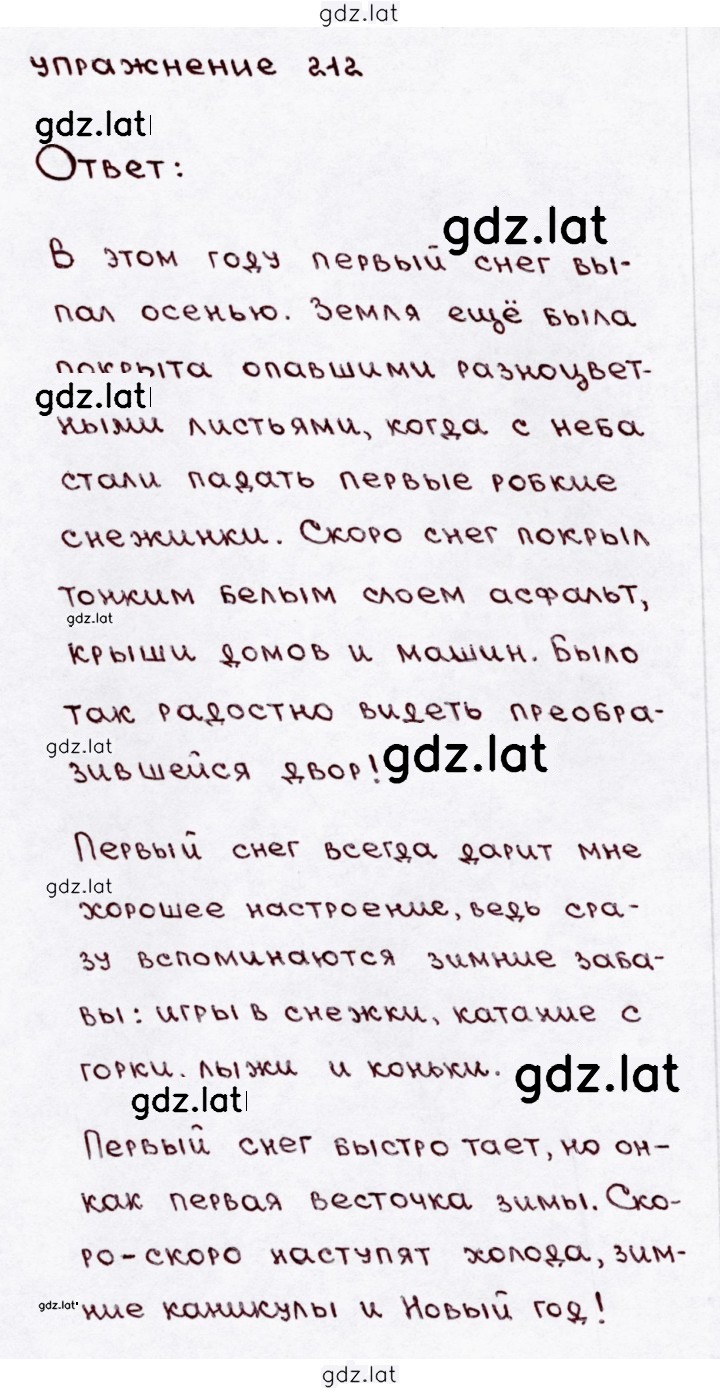 gdz.lat
упражнение 212
gdz.lat
Ответ:
gdz.lat
В этом году первый снег вы-
пал осенью. Земля ещё была
покрыта опавшими разноцвет-
gdz.lat
ными листьями, когда с неба
стали падать первые робкие
снежинки. Скоро снег покрыл
тонким белым слоем асфальт,
gdz.lat
крыши домов и машин. Было
так радостно видеть преобра-
gdz.lat
зившейся двор!
gdz.lat
Первый снег всегда дарит мне
gdz.lat
хорошее настроение, ведь сра-
зу вспоминаются зимние заба-
вы: игры в снежки, катание с
горки. лыжи и коньки.
gdz.lat
gdz.lat
Первый снег быстро тает, но он-
как первая весточка зимы. Ско-
ро-скоро наступят холода, зим-
gdz.lat
ние каникулы и Новый год!
gdz.lat